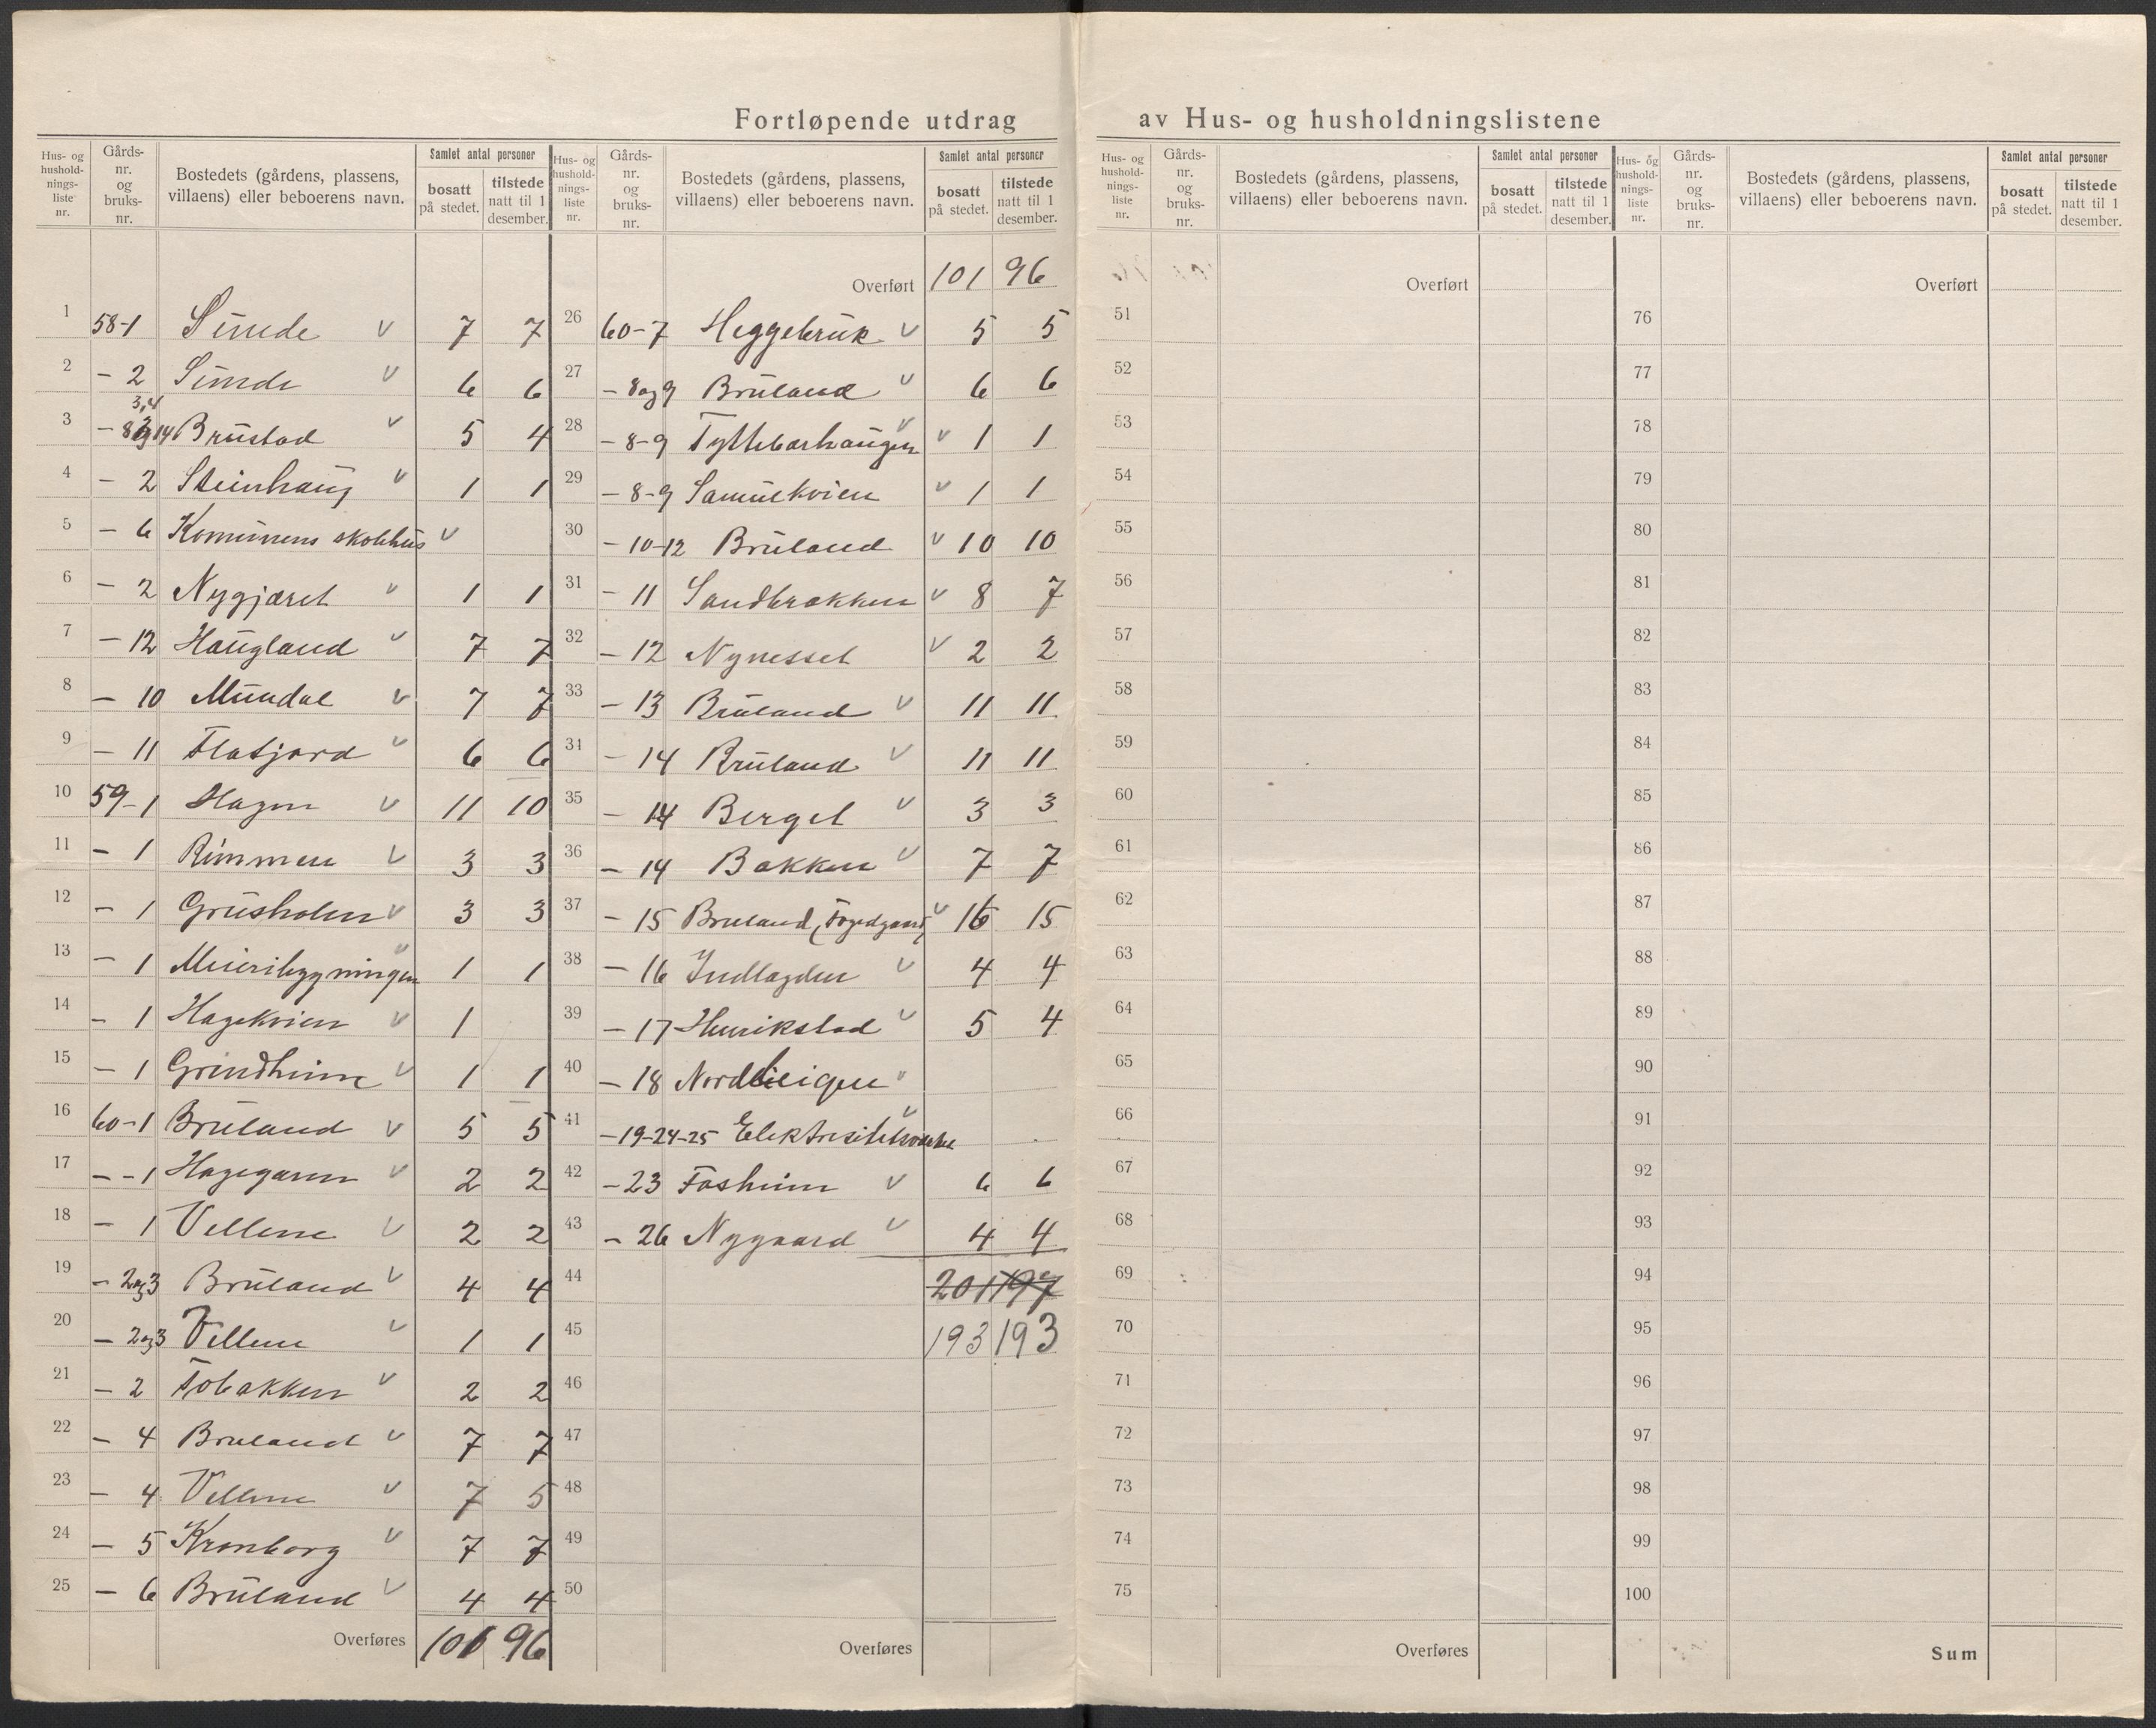 Fortløpende utdrag av Hus- og husholdningslistene
Hus- og hushold-nings-liste nr. Gårds-nr. og bruks-nr. Bostedets (gårdens, plassens, villaens) eller beboerens navn. Samlet antal personer bosatt på stedet. tilstede natt til 1 desember.
1 58-1 Sunde v 7 7
2 - 2 Sunde v 6 6
3 3,4 - 8 og 14 Brustad v 5 4
4 - 2 Steinhaug v 1 1
5 - 6 Komunens skolehus v
6 - 2 Nygjæret v 1 1
7 - 12 Haugland v 7 7
8 - 10 Mundal v 7 7
9 - 11 Flatjord v 6 6
10 59-1 Hagen v 11 10
11 - 1 Rimmen v 3 3
12 - 1 Grusholen v 3 3
13 - 1 Meieribygningen v 1 1
14 - 1 Hagekvien v 1
15 - 1 Grindheim v 1 1
16 60-1 Bruland v 5 5
17 - - 1 Hagegaren v 2 2
18 - 1 Vellene v 2 2
19 - 2 og 3 Bruland v 4 4
20 - 2 og 3 Vellene v 1 1
21 - 2 Tobakken v 2 2
22 - 4 Bruland v 7 7
23 - 4 Vellene v 7 5
24 - 5 Kronborg v 7 7
25 - 6 Bruland v 4 4
Overføres 101 96
Hus- og hushold-nings-liste nr. Gårds-nr. og bruks-nr. Bostedets (gårdens, plassens, villaens) eller beboerens navn. Samlet antal personer bosatt på stedet. tilstede natt til 1 desember.
Overført 101 96
26 60-7 Heggebruk v 5 5
27 - 8 og 9 Bruland v 6 6
28 - 8-9 Tyttebærhaugen v v 1 1
29 - 8-9 Samuelkvien v 1 1
30 - 10-12 Bruland v 10 10
31 - 11 Sandbrakken v 8 7
32 - 12 Nynesset v 2 2
33 - 13 Bruland v 11 11
34 - 14 Bruland v 11 11
35 - 14 Berget v 3 3
36 - 14 Bakken v 7 7
37 - 15 Bruland (Fogedgaard) v 16 15
38 - 16 Indlagden v 4 4
39 - 17 Henrikstad v 5 4
40 - 18 v
41 - 19-24-25 v
42 - 23 Fosheim v 6 6
43 - 26 Nygaard v 4 4
44 201 197
45 193 193
46
47
48
49
50
Overføres
Hus- og hushold-nings-liste nr. Gårds-nr. og bruks-nr. Bostedets (gårdens, plassens, villaens) eller beboerens navn. Samlet antal personer bosatt på stedet. tilstede natt til 1 desember.
Overført
51
52
53
54
55
56
57
58
59
60
61
62
63
64
65
66
67
68
69
70
71
72
73
74
75
Overføres
Hus- og hushold-nings-liste nr. Gårds-nr. og bruks-nr. Bostedets (gårdens, plassens, villaens) eller beboerens navn. Samlet antal personer bosatt på stedet. tilstede natt til 1 desember.
Overført
76
77
78
79
80
81
82
83
84
85
86
87
88
89
90
91
92
93
94
95
96
97
98
99
100
Sum